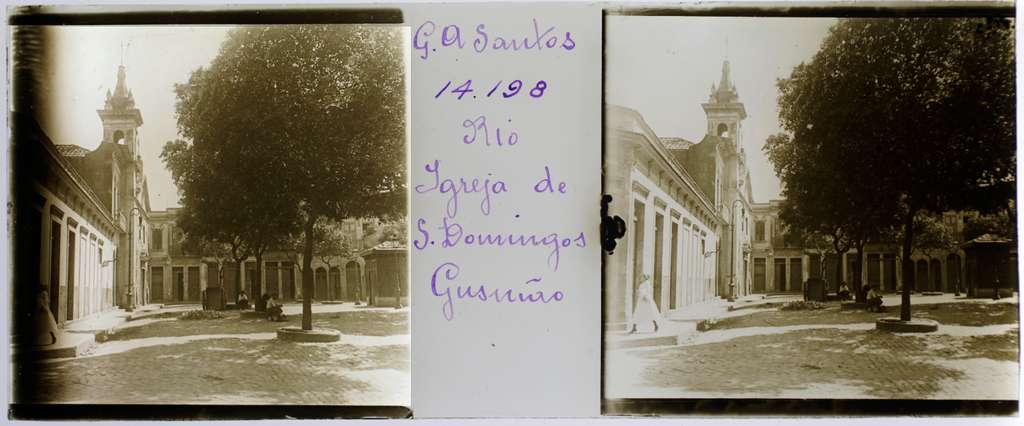 G. A Santos
14.198
Rio
Igreja de
S. Domingos
Gusmão